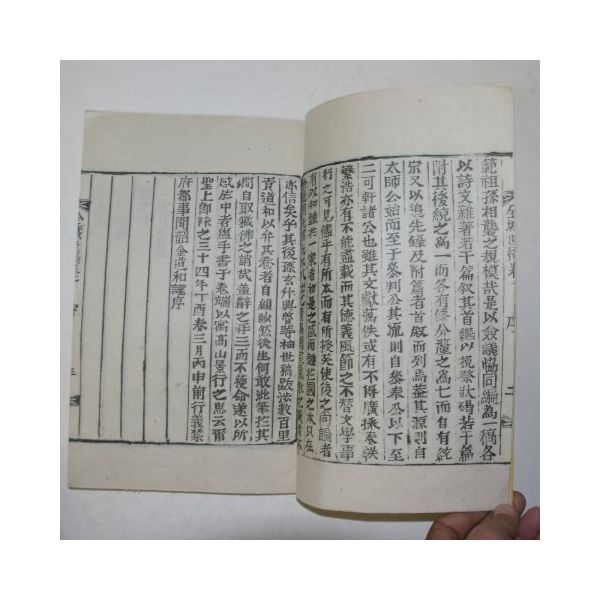 範祖孫相襲之規模哉是以僉議恊同編為一稿各
以詩文雜著若干篇叙其首繼以挽祭狀碣若干篇
附其後統之為一而各有條分釐之為七而自有統
宗又以追先錄及附篇者首叙而列焉盖其源則自
太師公始而至于叅判公其流則自叅奉公以下至
二可軒諸公也雖其文獻蕩佚或有不得廣採卷帙
繁浩亦有不能盡載而其德義風節之不朁文學事
行之可見儘乎有所本而有所授矣使後之向論者
有以知鍾於一家者如是之盛而鍾於國之本只在
亦信矣乎其後孫玄升興曾等袖世稿跋涉數百里
責道和以弁其卷者自顧眇然後生何敢此筆於其
間自取猥越之誚哉盖辭之再三而不獲命遂以所
感於中者畧手書于卷端以寓高山景行之思云爾
聖上卽阼之三十四年丁酉春三月丙申前行義禁
府都事聞韶金道和謹序
序
二
三